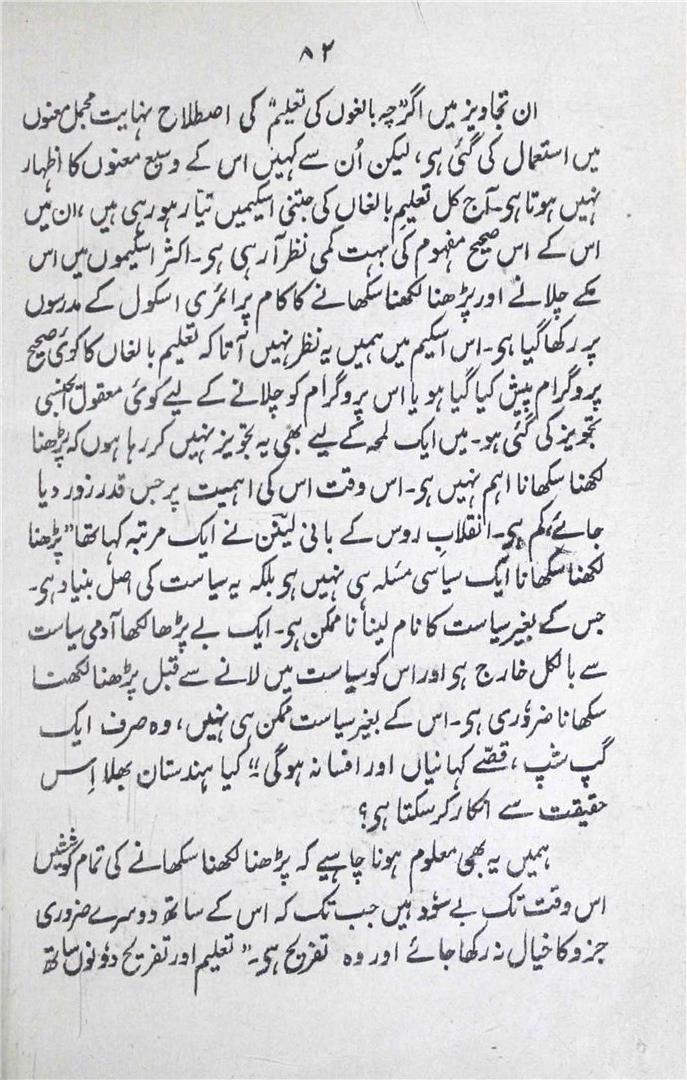 ۸۲
ان تجاویز میں اگرچہ "بالغوں کی تعلیم" کی اصطلاح نہایت مجمل معنوں
میں استعمال کی گئی ہی، لیکن اُن سے کہیں اس کے وسیع معنوں کا اظہار
نہیں ہوتا ہی۔ آج کل تعلیمِ بالغاں کی جتنی اسکیمیں تیار ہو رہی ہیں، ان میں
اس کے اس صحیح مفہوم کی بہت کمی نظر آ رہی ہی۔ اکثر اسکیموں میں اس
کے چلانے اور پڑھنا لکھنا سکھانے کا کام پرائمری اسکول کے مدرسوں
پر رکھا گیا ہی۔ اس اسکیم میں ہمیں یہ نظر نہیں آتا کہ تعلیم بالغاں کا کوئی صحیح
پروگرام پیش کیا گیا ہو یا اس پروگرام کو چلانے کے لیے کوئی معقول ایجنسی
تجویز کی گئی ہو۔ میں ایک لمحہ کے لیے بھی یہ تجویز نہیں کر رہا ہوں کہ پڑھنا
لکھنا سکھانا اہم نہیں ہی۔ اس وقت اس کی اہمیت پر جس قدر زور دیا
جائے، کم ہی۔ انقلابِ روس کے بانی لینن نے ایک مرتبہ کہا تھا "پڑھنا
لکھنا سکھانا ایک سیاسی مسئلہ ہی نہیں ہو بلکہ یہ سیاست کی اصل بنیاد ہو۔
جس کے بغیر سیاست کا نام لینا نا ممکن ہی۔ ایک بے پڑھا لکھا آدمی سیاست
سے بالکل خارج ہی اور اس کو سیاست میں لانے سے قبل پڑھنا لکھنا
سکھانا ضروری ہی۔ اس کے بغیر سیاست ممکن ہی نہیں، وہ صرف ایک
گپ شپ، قصّے کہانیاں اور افسانہ ہوگی"۔ کیا ہندستان بھلا اِس
حقیقت سے انکار کر سکتا ہی؟
ہمیں یہ بھی معلوم ہونا چاہیے کہ پڑھنا لکھنا سکھانے کی تمام کوششیں
اس وقت تک بے سوٗد ہیں جب تک کہ اس کے ساتھ دوسرے ضروری
جزو کا خیال نہ رکھا جائے اور وہ تفریح ہی۔ "تعلیم اور تفریح دونوں ساتھ